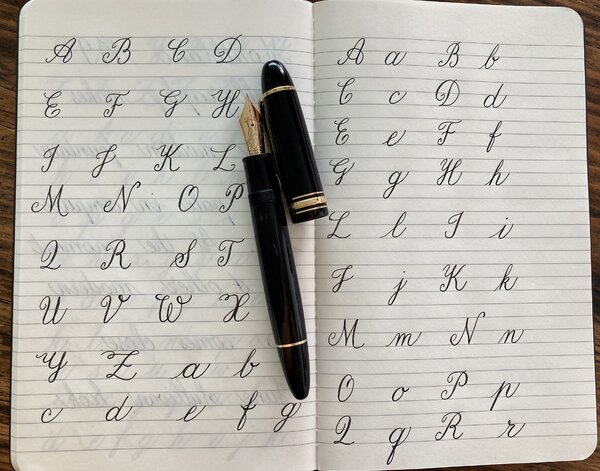 A B C D
E F G H
I J K L
M N O P
Q R S T
U V W X
Y Z a b
c d e f g
A a B b
C c D d
E e F f
G g H h
L l I i
J j K k
M m N n
O o P p
Q q R r